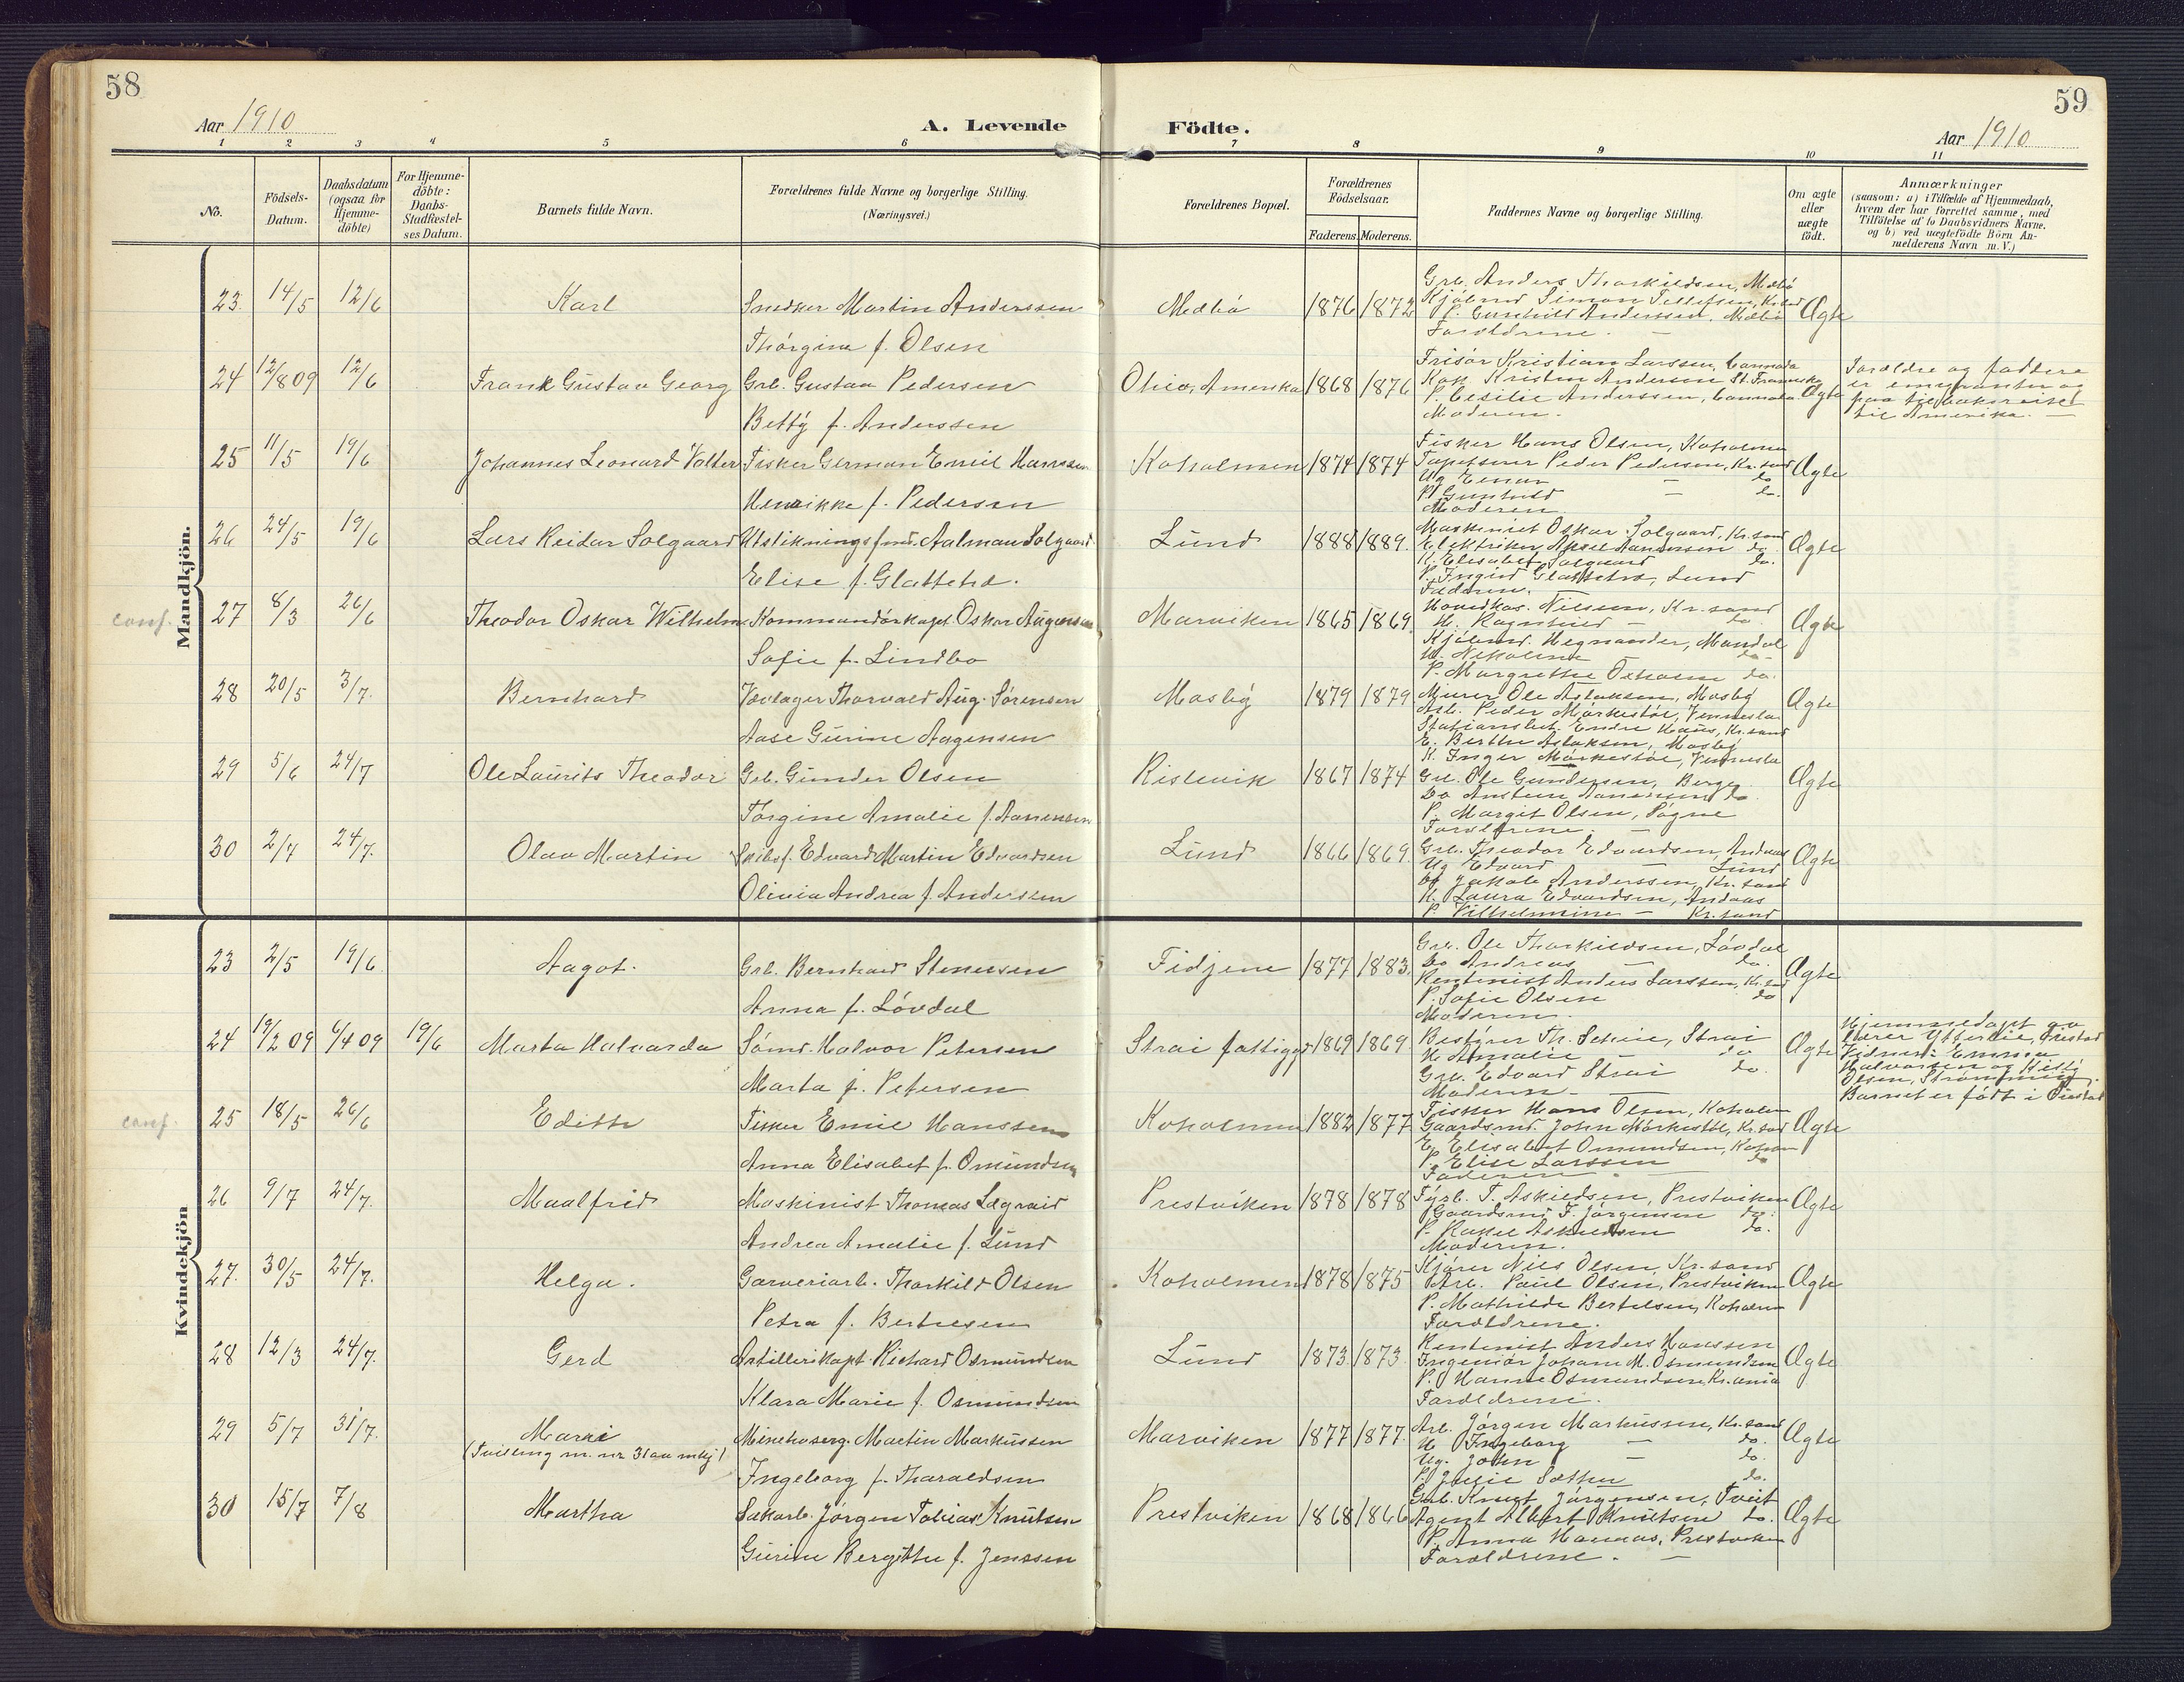 58
59
Aar 1910
A. Levende
Födte.
Aar 1910
1 2 3 4 5 6 7 8 9 10 11
No.
Födsels-
Datum.
Daabsdatum
(ogsaa for
Hjemme-
döbte)
For Hjemme-
döbte:
Daabs-
Stadfæstel-
ses Datum.
Barnets fulde Navn.
Forældrenes fulde Navne og borgerlige Stilling.
(Næringsvei.)
Forældrenes Bopæl.
Forældrenes
Födselsaar.
Faderens. Moderens.
Faddernes Navne og borgerlige Stilling.
Om ægte
eller
uægte
födt.
Anmærkninger
(saasom: a) i Tilfælde af Hjemmedaab,
hvem der har forrettet samme, med
Tilföielse af to Daabsvidners Navne,
og b) ved uægtefödte Börn An-
melderens Navn m. V.)
Mandkjön.
23. 14/5 12/6 Karl
Snedker Martin Anderssen
Thórgine f. Olsen
Mæbø 1876 1872
Grb. Anders Thorkildsen, Mæbø
Kjólmd Simon Tellefsen, Kr.sand
P. Gunhild Anderssen, Mæbø
Forældrene.
Ægte
24 12/8 09 12/6 Frank Gustav Georg
Grb. Gustav Pedersen
Betty f. Anderssen
Ohio, Amerika 1868 1876
Frisör Kristian Larssen, Cannada
Kristen Andersen St. Francisko
P. Cesilie Anderssen, Cannada
Moderen.
Ægte
Foreldre og faddere
er emigranter og
paa tilbakereise
til Amerika.
25 11/5 19/6 Johannes Leonard Volter
Fisker German Emil Hanssen
Henrikke f. Pedersen
Koholmen 1874 1874
Fisker Hans Olsen, Koholmen
Tapetserer Peder Pedersen, Kr.sand
Ug Einar — do
P. Gunhild — do.
Moderen
Ægte
26 24/5 19/6 Lars Reidar Solgaard
Utstikningsfmd. Aalman Solgaard
Elise f. Glattetre.
Lund 1888 1889.
Maskinist Oskar Solgaard, Kr.sand
Elektriker Aksel Aanensen do.
K. Elisabet Solgaard do.
P. Ingrid Glattetre, Lund
Faderen.
Ægte
conf.
27 8/3 26/6 Theodor Oskar Wilhelm
Kommandörkapt. Oskar Augensen
Sofie f. Lindbo
Marviken 1865 1869
Hovedkas. Nilsen, Kr.sand
H. Ragnhild — do
Kjólmd. Hegnander, Mandal
H. Nikoline — do
P. Margrethe Ekholm do.
Ægte
28 20/5 3/7. Bernhard
Vævlager Thorvald Aug. Sörensen
Aase Gurine Aagensen
Mosby 1879 1879
Murer Ole Aslaksen, Mosby
Arb. Peder Mórkestól, Vennesla
Stationsbet. Endre Haus, Kr.sand
E. Berthe Aslaksen, Mosby
K. Inger Mórkestól, Vennesla
Ægte
29 5/6 24/7 Ole Laurits Theodor
Grb. Gunder Olsen
Torgine Amalie f. Aanensen
Rislevik 1867 1874
Grb. Ole Gundersen, Berge
Do Anstein Aanensen do
P. Margit Olsen, Sógne
Forældrene.
Ægte
30 2/7 24/7. Olav Martin
Skibsf. Edvard Martin Edvardsen
Olivia Andrea f. Anderssen
Lund 1866 1869.
Grb. Theodor Edvardsen, Andaas
Ug Edvard — Lund
Do Jakob Anderssen, Kr.sand
K. Laura Edvardsen, Andaas
P. Vilhelmine — Kr.sand
Ægte
Kvindekjön
23 2/5 19/6 Aagot.
Grb. Bernhard Stenersen
Anna f. Lövdal
Fidjene 1877 1883.
Grb. Ole Thorkildsen, Lövdal
Do Andreas — do.
Rentenist Anders Larssen, Kr.sand
P. Sofie Olsen do
Moderen.
Ægte
24 19/2 09 6/4 09 19/6 Marta Halvarda
Sömd. Halvor Petersen
Marta f. Petersen
Strai fattiggd 1869 1869.
Bestyrer Th. Schie, Strai
H Amalie — do
Grb. Edvard Strai do.
Moderen
Ægte
Hjemmedøpt av
lærer Ytterlie, Firestad
Vidner: Emma
Halvorsen og Kitty
Olsen, Strømmen.
Barnet er født i Fiestad
conf.
25 18/5 26/6 Edith
Fisker Emil Hanssen
Anna Elisabet f. Omundsen
Koholmen 1882 1877
Fisker Hans Olsen, Koholm
Gaardsmd. John Mórkestól, Kr.sand
E. Elisabet Omundsen, Kohom
P. Elise Larssen do
Faderen.
Ægte
26 9/7 24/7. Maalfrid
Maskinist Thomas Lægreid
Andrea Amalie f. Lund
Prestviken 1878 1878
Fyrb. T. Askildsen, Prestviken
Gaardsmd F. Jörgensen do.
P. Rakel Askildsen do.
Moderen.
Ægte
27. 30/5 24/7. Helga.
Garveriarb. Thorkild Olsen
Petra f. Bertelsen
Koholmen 1878 1875
Kjörer Nils Olsen, Kr.sand
Arb. Paul Olsen, Prestviken
P. Mathilde Bertelsen, Koholm
Forældrene.
Ægte
28 12/3 24/7. Gerd
Artillerikapt. Richard Osmundsen
Klara Marie f. Osmundsen
Lund 1873 1873.
Rentenist Anders Hanssen
Ingeniör Johan M. Osmundsen
P. Hanne Osmundsen, Kr.ania
Forældrene.
Ægte
29 5/7 31/7. Marni
(Tvilling m. nr 31 av mkj)
Martin Markussen
Ingeborg f. Tharaldsen
Marviken 1877 1877.
Arb. Jörgen Markussen, Kr.sand
H Ingeborg — do.
Ug. John — do.
P. Julie Sæther do.
Ægte
30 15/7 7/8 Martha
Sakarb. Jörgen Tobias Knutsen
Gurine Bergitte f. Jenssen
Prestviken 1868 1866
Grb. Knut Jörgensen, Tveit
Agent Albert Knutsen do.
P. Anna Haanaas, Prestviken
Forældrene.
Ægte